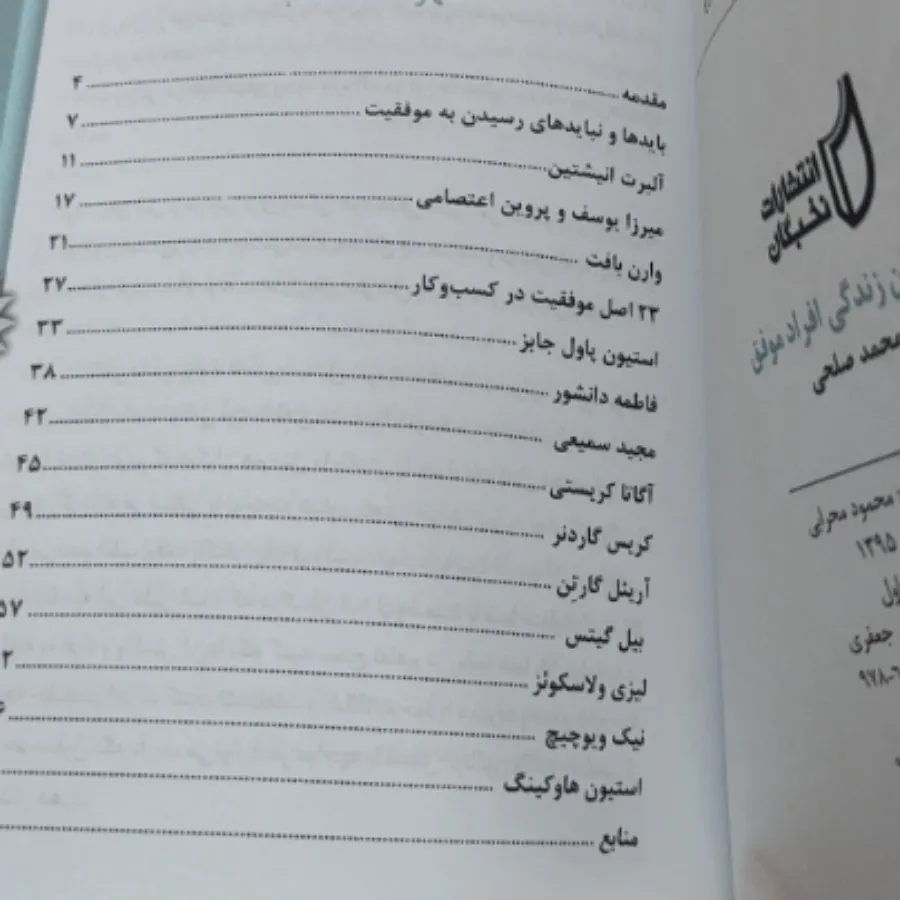 مقدمه ........ ۴
بایدها و نبایدهای رسیدن به موفقیت ........ ۷
آلبرت انیشتین ........ ۱۱
میرزا یوسف و پروین اعتصامی ........ ۱۷
وارن بافت ........ ۲۱
۲۳ اصل موفقیت در کسب‌وکار ........ ۲۷
استیون پاول جابز ........ ۳۳
فاطمه دانشور ........ ۳۸
مجید سمیعی ........ ۴۲
آگاتا کریستی ........ ۴۵
کریس گاردنر ........ ۴۹
آریئل گارتِن ........ ۵۲
بیل گیتس ........ ۵۷
لیزی ولاسکوئز ........ ۲
نیک ویوچیچ ........ ۶
استیون هاوکینگ ........
منابع ........
انتشارات
نخبگان
زندگی افراد موفق
محمد صلحی
محمود محرابی
۱۳۹۵
جعفری
۹۷۸-۶